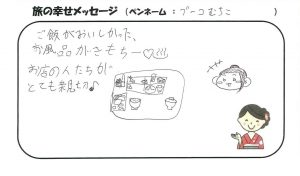 旅の幸せメッセージ (ペンネーム：ブーコむらこ )
ご飯がおいしかった、
お風呂がきもちー♡
お店の人たちが
とても親切♪